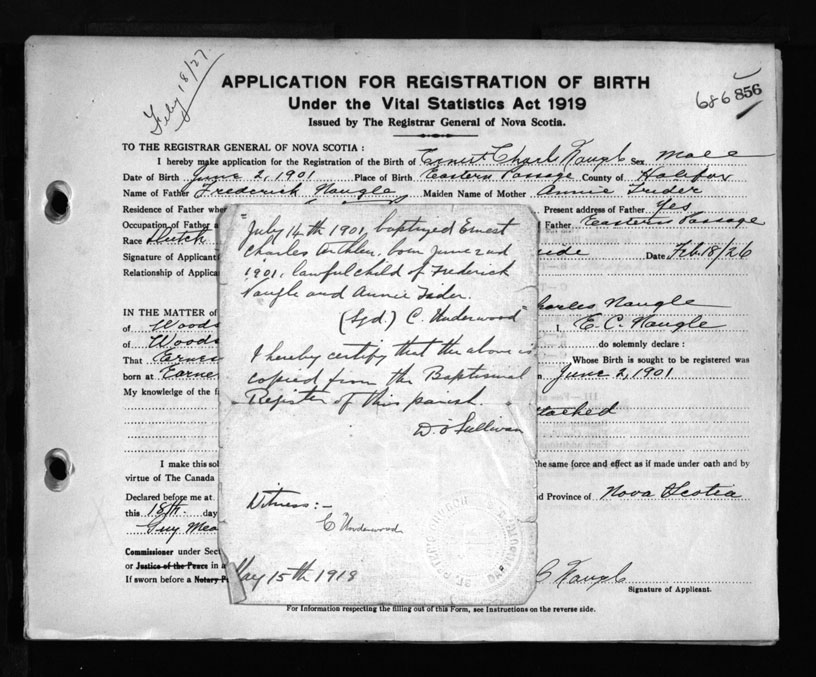 Feby 18/27
APPLICATION FOR REGISTRATION OF BIRTH
686 856
Under the Vital Statistics Act 1919
Issued by The Registrar General of Nova Scotia.
TO THE REGISTRAR GENERAL OF NOVA SCOTIA :
I hereby make application for the Registration of the Birth of Ernest Charls Naugle Sex Male
Date of Birth June 2, 1901 Place of Birth Eastern Passage County of Halifax
Name of Father Frederick Naugle Maiden Name of Mother Annie
Residence of Father whe Present address of Father Yes
Occupation of Father a Father Eastern Passage
Race Dutch
Signature of Applicant Date Feb. 18/26
Relationship of Applica
"July 14th 1901, baptized Ernest
Charles, born June 2nd
1901, lawful child of Frederick
Naugle and Annie
(Sgd.) C. Underwood"
I hereby certify that the above is
copied from the Baptismal
Register of this parish
D. O'Sullivan
Witness :-
C Underwood
May 15th 1918
IN THE MATTER of Charles Naugle
of Woods I, E. C. Naugle
of Woods do solemnly declare :
That Ernes Whose Birth is sought to be registered was
born at June 2, 1901
My knowledge of the f tached
I make this sol the same force and effect as if made under oath and by
virtue of The Canada
Declared before me at d Province of Nova Scotia
this 18th day
Guy
Commissioner under Sect
or Justice of the Peace in a C Naugle
If sworn before a Notary P Signature of Applicant.
For Information respecting the filling out of this Form, see Instructions on the reverse side.